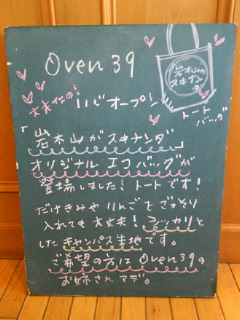 Oven 39
岩木山が
スキナンダ
トート
バッグ
大人気の!
リバオープン!
「岩木山がスキナンダ」
オリジナル エコバッグが
登場しました!トートです!
だけきみや りんごをごっそり
入れても大丈夫!シッカリと
した キャンバス生地です。
ご希望の方は Oven39の
お姉さんマデ。